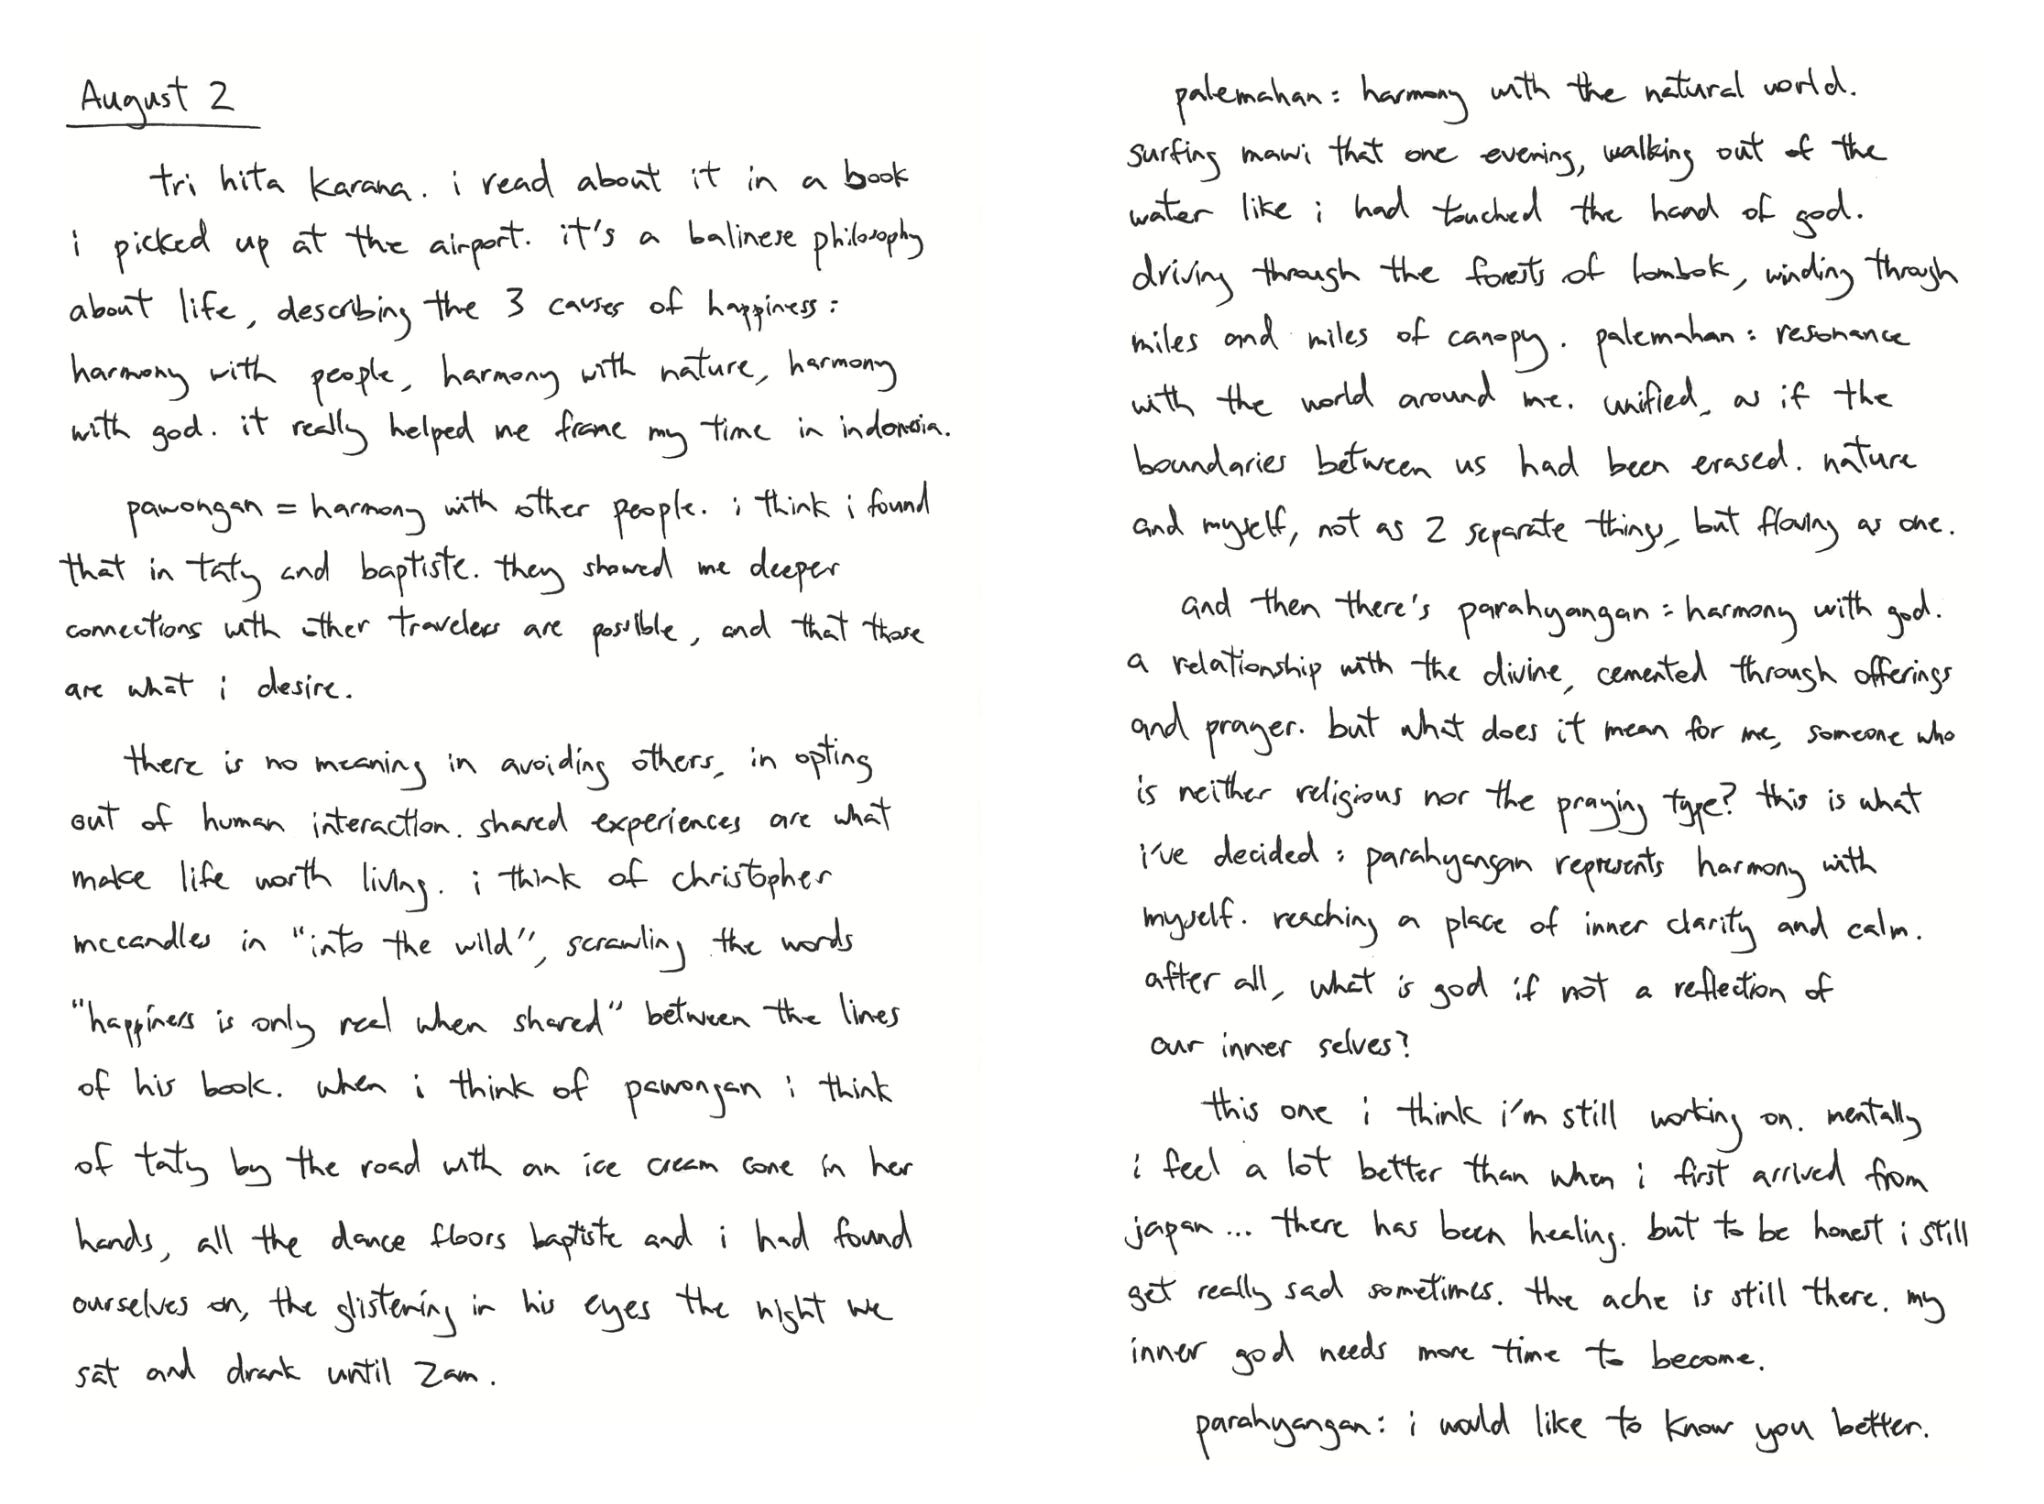 August 2
tri hita karana. i read about it in a book
i picked up at the airport. it's a balinese philosophy
about life, describing the 3 causes of happiness:
harmony with people, harmony with nature, harmony
with god. it really helped me frame my time in indonesia.
pawongan = harmony with other people. i think i found
that in taty and baptiste. they showed me deeper
connections with other travelers are possible, and that those
are what i desire.
there is no meaning in avoiding others, in opting
out of human interaction. shared experiences are what
make life worth living. i think of christopher
mccandles in "into the wild", scrawling the words
"happiness is only real when shared" between the lines
of his book. when i think of pawongan i think
of taty by the road with an ice cream cone in her
hands, all the dance floors baptiste and i had found
ourselves on, the glistening in his eyes the night we
sat and drank until 2am.
palemahan: harmony with the natural world.
surfing mawi that one evening, walking out of the
water like i had touched the hand of god.
driving through the forests of lombok, winding through
miles and miles of canopy. palemahan: resonance
with the world around me. unified, as if the
boundaries between us had been erased. nature
and myself, not as 2 separate things, but flowing as one.
and then there's parahyangan: harmony with god.
a relationship with the divine, cemented through offerings
and prayer. but what does it mean for me, someone who
is neither religious nor the praying type? this is what
i've decided: parahyangan represents harmony with
myself. reaching a place of inner clarity and calm.
after all, what is god if not a reflection of
our inner selves?
this one i think i'm still working on. mentally
i feel a lot better than when i first arrived from
japan... there has been healing. but to be honest i still
get really sad sometimes. the ache is still there. my
inner god needs more time to become.
parahyangan: i would like to know you better.